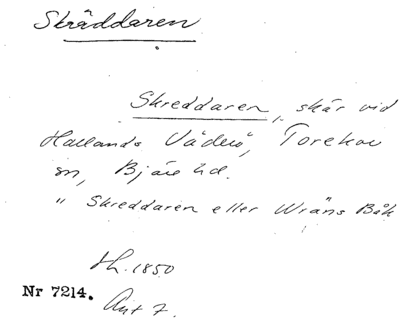 Skräddaren
Skreddaren, skär vid
Hallands Väderö, Torekov
sn, Bjäre hd.
" Skreddaren eller Wräns Båk
1850
Nr 7214.
Ant 7.